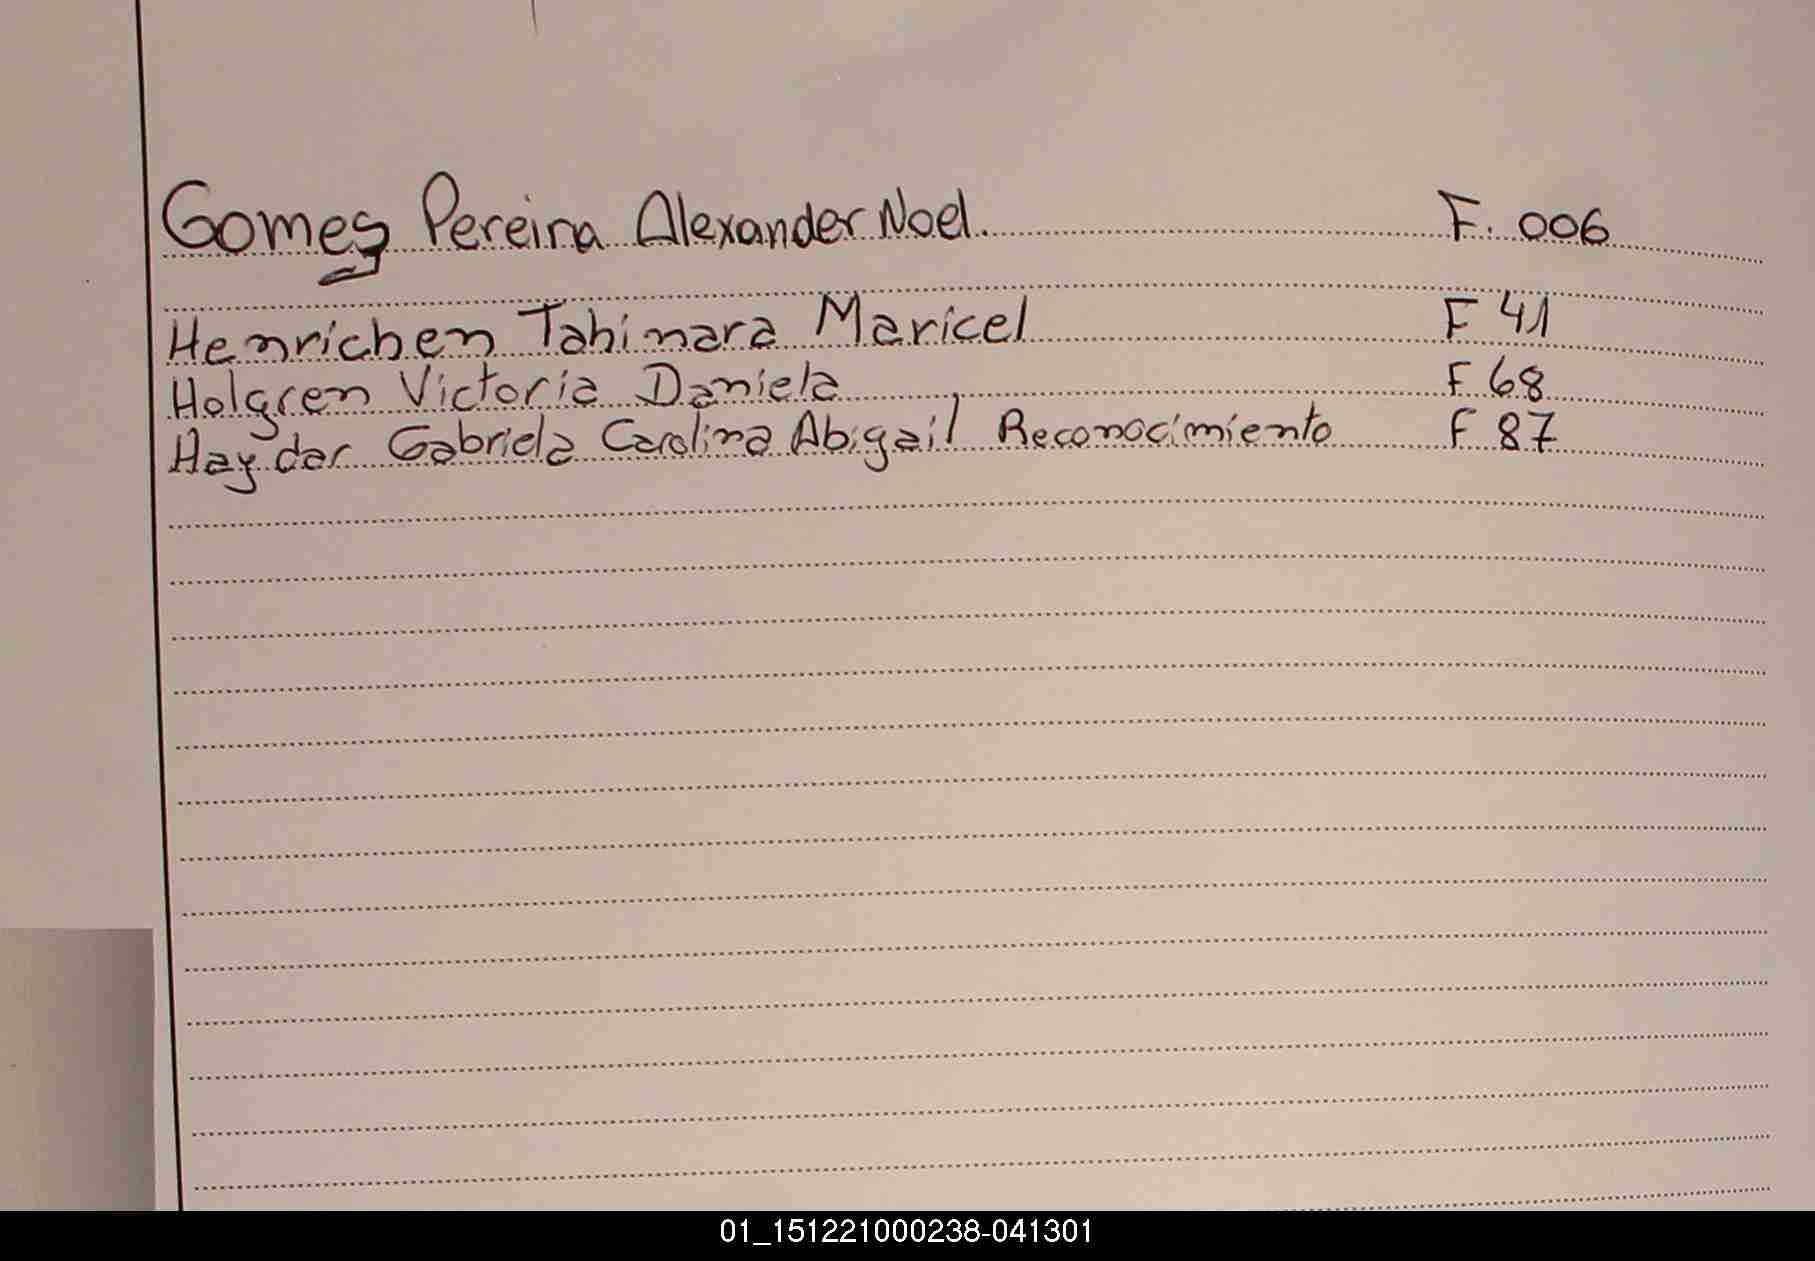 Gomes Pereira Alexander Noel. F. 006
Henrichen Tahimara Maricel F 41
Holgren Victoria Daniela F 68
Haydar Gabriela Carolina Abigail Reconocimiento F 87
01_151221000238-041301